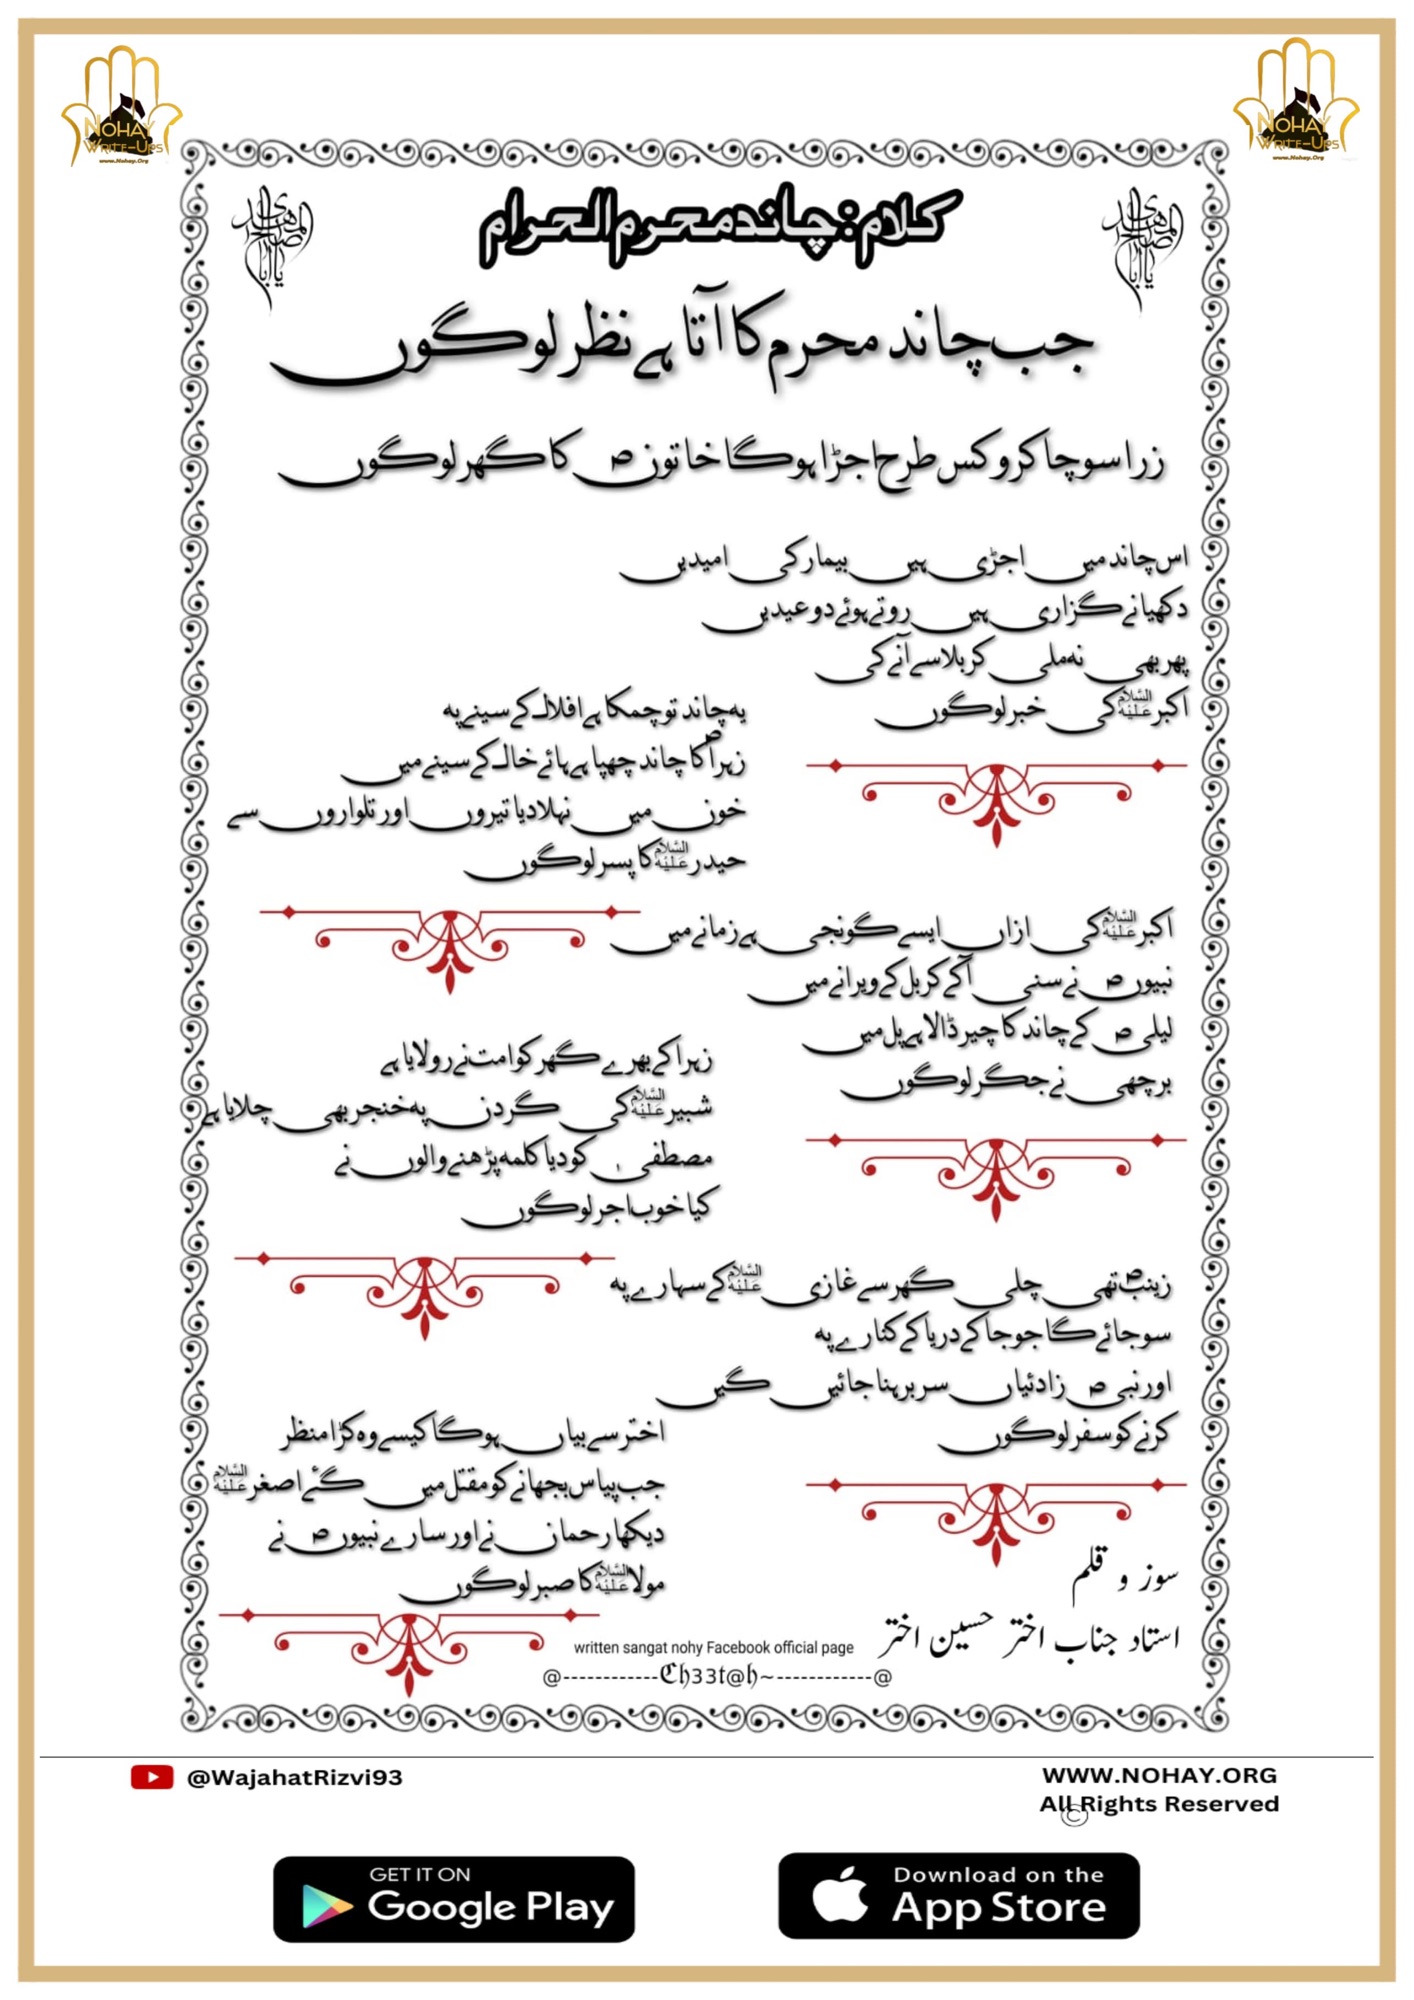 NOHAY
WRITE-UPS
www.Nohay.Org
NOHAY
WRITE-UPS
www.Nohay.Org
کلام: چاند محرم الحرام
جب چاند محرم کا آتا ہے نظر لوگوں
زرا سوچا کرو کس طرح اجڑا ہوگا خاتون ص کا گھر لوگوں
اس چاند میں اجڑی ہیں بیمار کی امیدیں
دکھیا نے گزاری ہیں روتے ہوئے دو عیدیں
پھر بھی نہ ملی کربلا سے آنے کی
اکبر علیہ السلام کی خبر لوگوں
یہ چاند تو چمکا ہے افلاک کے سینے پہ
زہرا ص کا چاند چھپا ہے ہائے خاک کے سینے میں
خون میں نہلا دیا تیروں اور تلواروں سے
حیدر علیہ السلام کا پسر لوگوں
اکبر علیہ السلام کی ازاں ایسے گونجی ہے زمانے میں
نبیوں ص نے سنی آکے کربل کے ویرانے میں
لیلی ص کے چاند کا چیر ڈالا ہے پل میں
برچھی نے جگر لوگوں
زہرا کے بھرے گھر کو امت نے رولایا ہے
شبیر علیہ السلام کی گردن پہ خنجر بھی چلایا ہے
مصطفیٰ کو دیا کلمہ پڑھنے والوں نے
کیا خوب اجر لوگوں
زینب ص تھی چلی گھر سے غازی علیہ السلام کے سہارے پہ
سو جائے گا جو جا کے دریا کے کنارے پہ
اور نبی ص زادئیاں سر برہنا جائیں گیں
کرنے کو سفر لوگوں
اختر سے بیاں ہوگا کیسے وہ کڑا منظر
جب پیاس بجھانے کو مقتل میں گئے اصغر علیہ السلام
دیکھا رحمان نے اور سارے نبیوں ص نے
مولا علیہ السلام کا صبر لوگوں
سوز و قلم
استاد جناب اختر حسین اختر
written sangat nohy Facebook official page
@------------Ch33t@h~------------@
@WajahatRizvi93
WWW.NOHAY.ORG
All Rights Reserved
©
GET IT ON
Google Play
Download on the
App Store